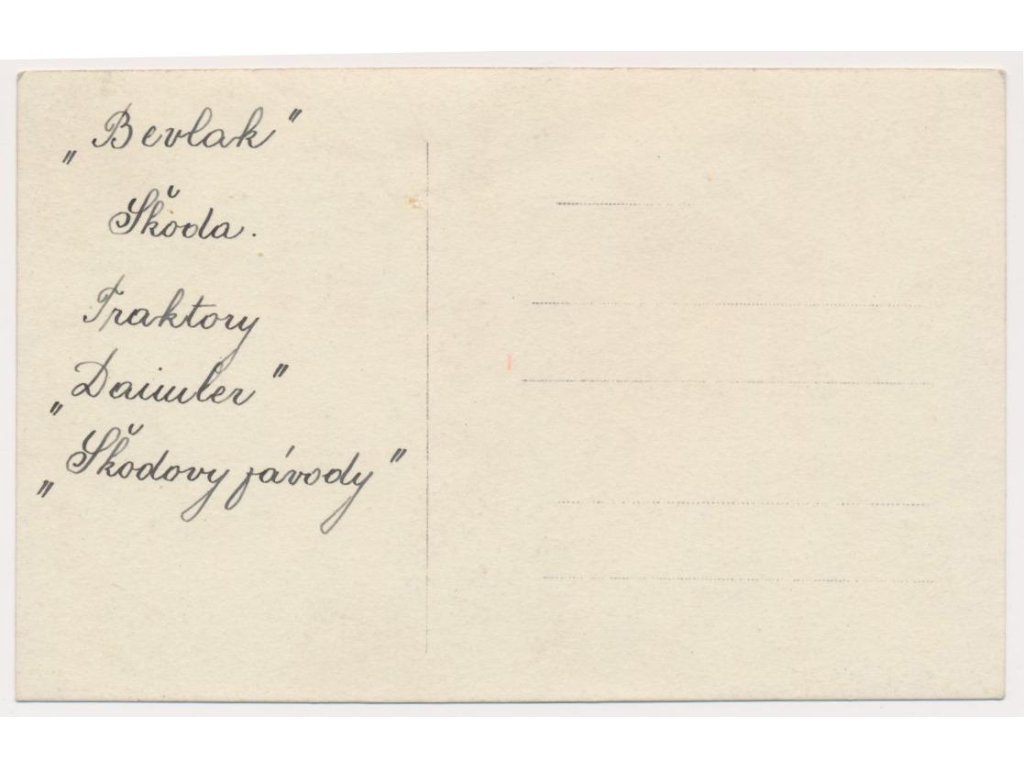 „Bevlak"
Škoda.
Traktory
„Daimler"
„Škodovy závody"